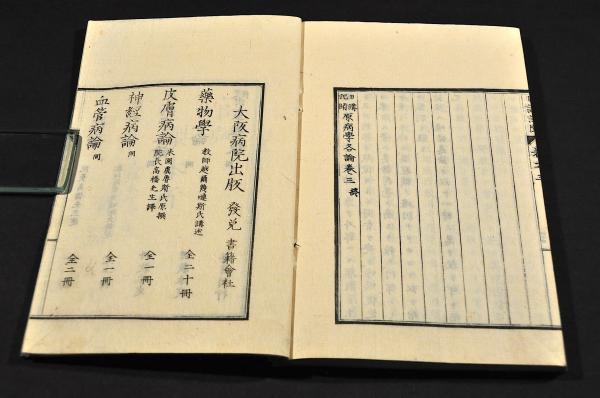 日講記聞原病學各論卷三 終
大阪病院出版 發兌 書籍會社
藥物學 教師越爾蔑嗹斯氏講述 全二十冊
皮膚病論 米國虞魯斯氏原撰 院長高橋先生譯 全一冊
神經病論 同 全一冊
血管病論 同 全二冊